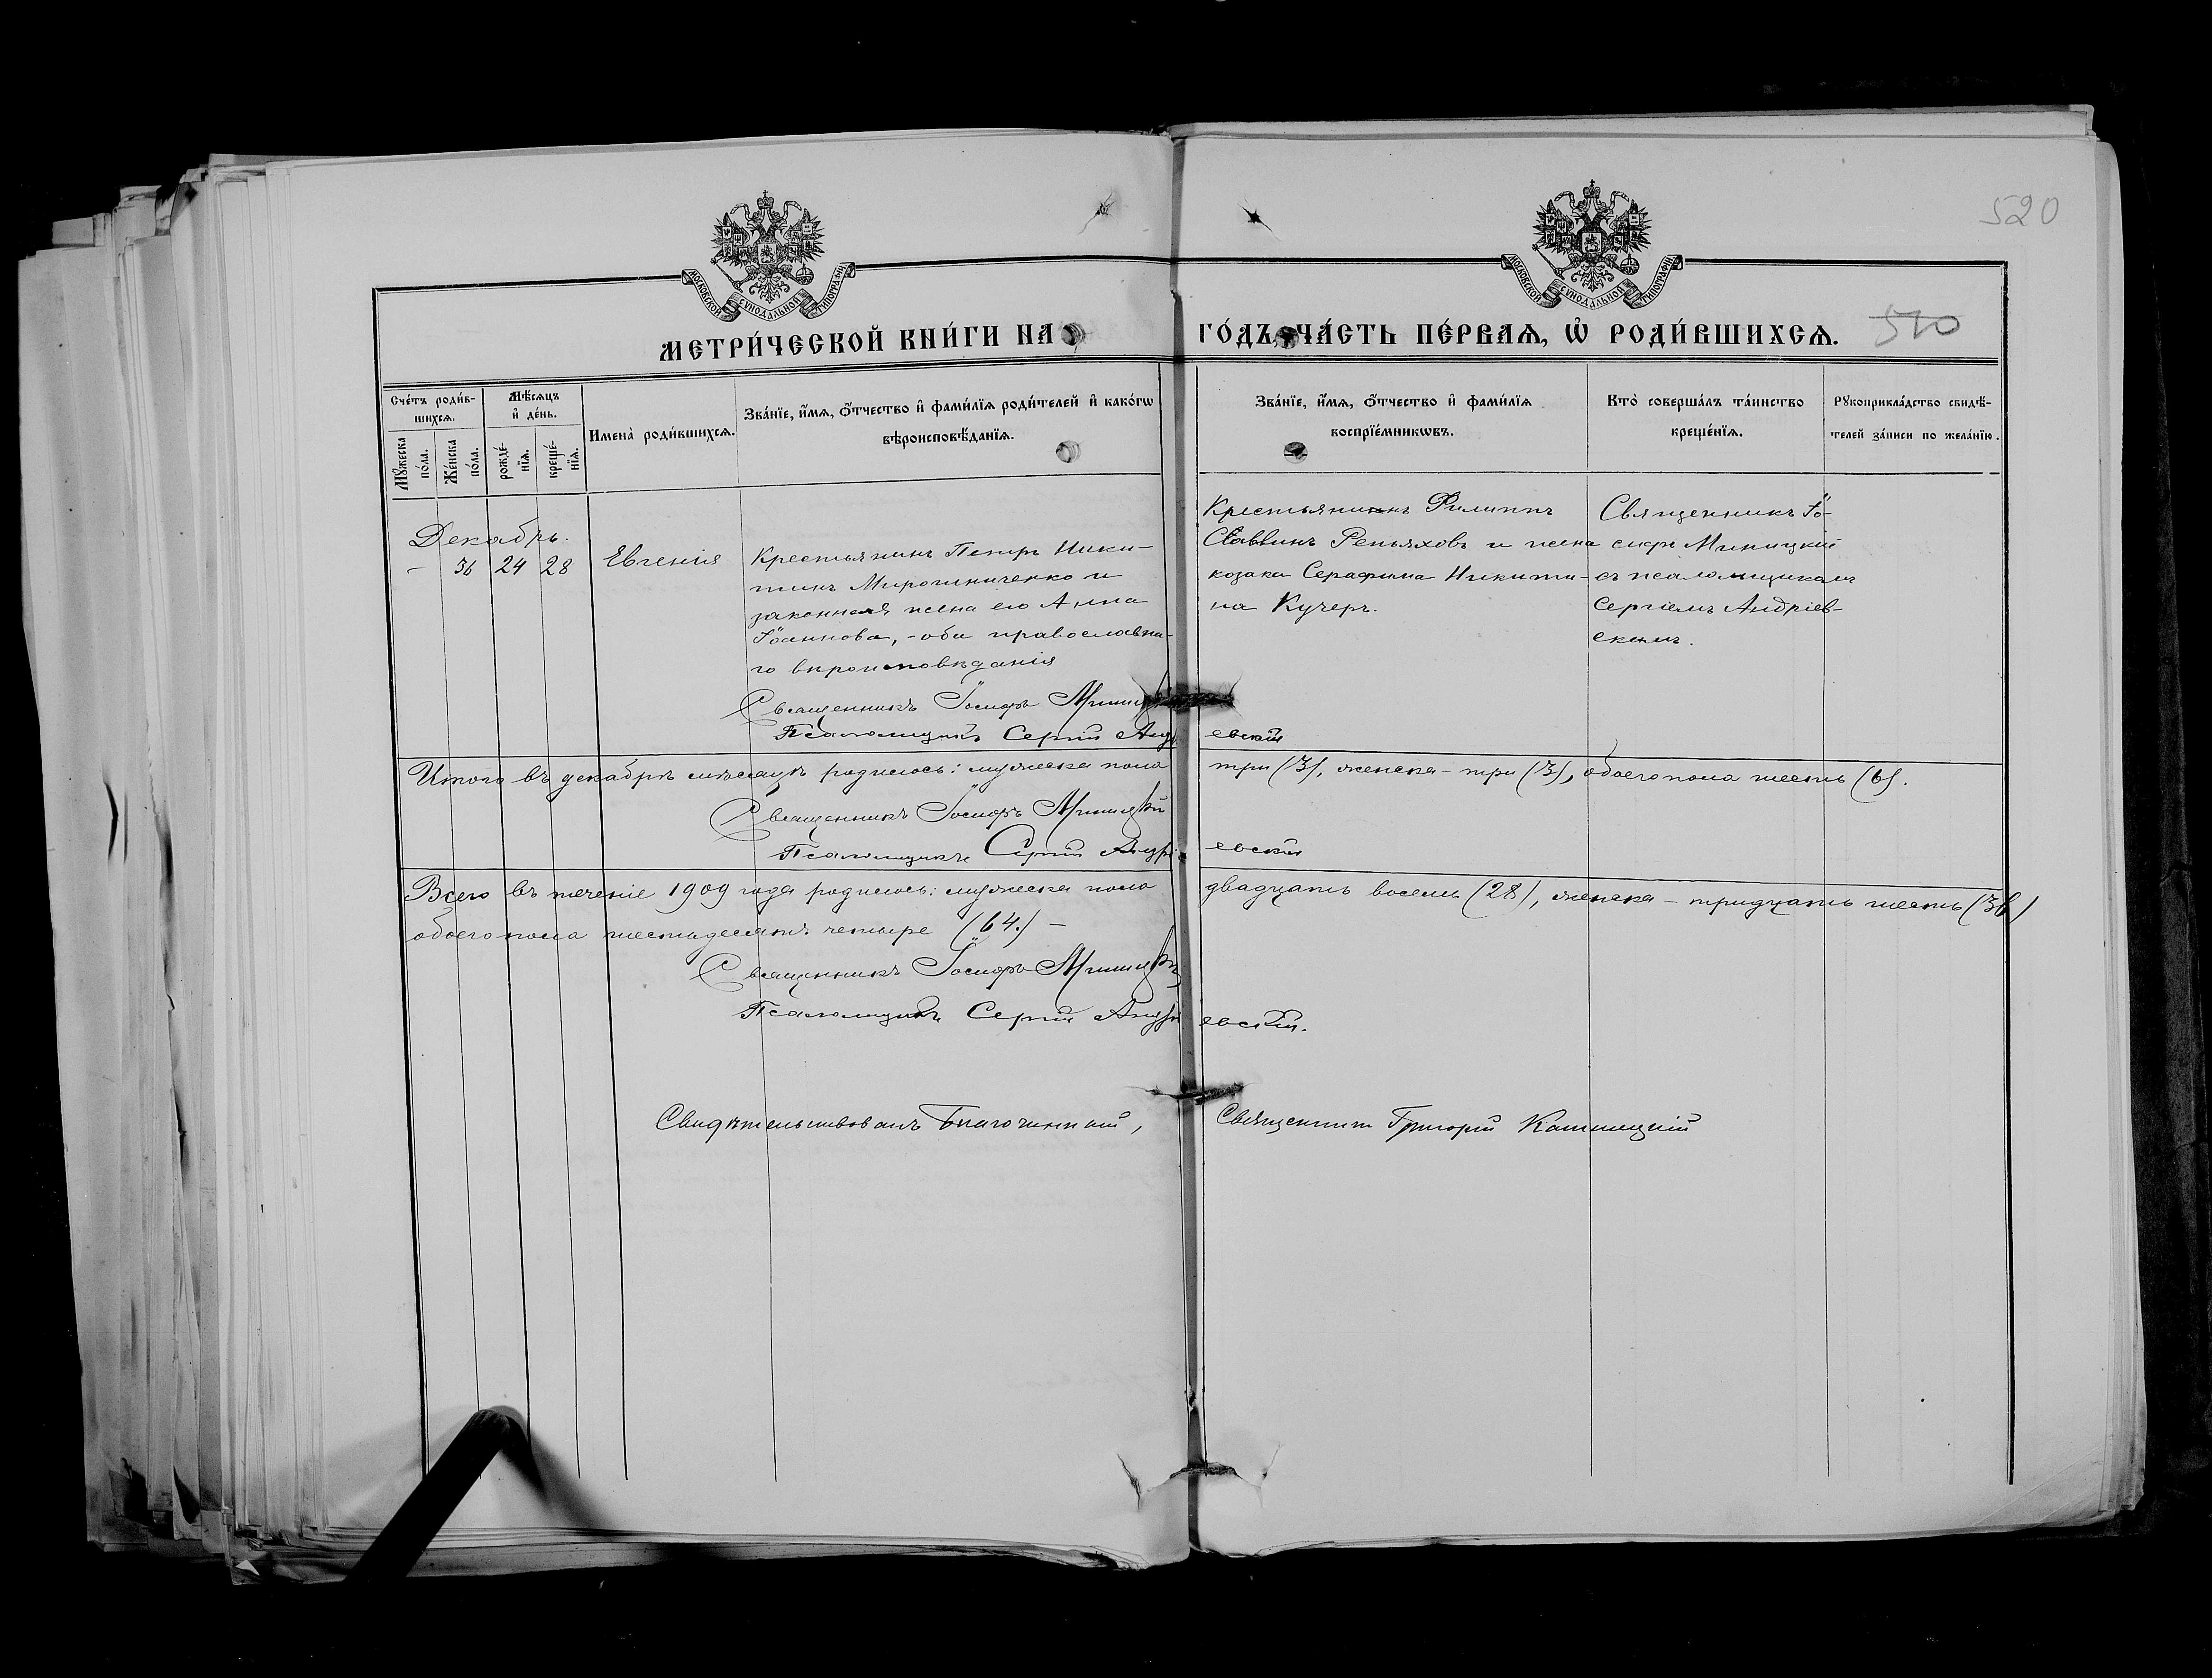 520
МОСКОВСКОЙ СѴНОДАЛЬНОЙ ТИПОГРАФІИ
МОСКОВСКОЙ СѴНОДАЛЬНОЙ ТИПОГРАФІИ
МЕТРИ́ЧЕСКОЙ КНИ́ГИ НА ГО́ДЪ, ЧА́СТЬ ПЕ́РВАѦ, Ѡ҆ РОДИ́ВШИХСѦ.
510
Сче́тъ роди́в-
шихсѧ.
Мѣ́сѧцъ
и҆ де́нь.
Мꙋ́жеска
по́ла.
Же́нска
по́ла.
рожде́-
нїѧ.
креще́-
нїѧ.
Имена̀ роди́вшихсѧ.
Зва́нїе, и҆́мѧ, ѻ҆́тчество и҆ фами́лїѧ роди́телей и҆ како́гѡ
вѣроисповѣ́данїѧ.
Зва́нїе, и҆́мѧ, ѻ҆́тчество и҆ фами́лїѧ
воспрїе́мникѡвъ.
Кто̀ соверша́лъ та́инство
креще́нїѧ.
Рꙋкоприкла́дство свидѣ́-
телей за́писи по жела́нїю.
Декабрь.
– 36 24 28
Евгенія
Крестьянинъ Петръ Ники-
тинъ Мирошниченко и
законная жена его Анна
Іоаннова, - оба православна-
го вѣроисповѣданія
Крестьянинъ Филиппъ
Саввинъ Репьяховъ и жена
козака Серафима Никити-
на Кучеръ.
Священникъ Іо-
сифъ Миницкій
съ псаломщикомъ
Сергіемъ Андріев-
скимъ.
Священникъ Іосифъ
Псаломщикъ Сергій Андріевскій
Итого въ декабрѣ мѣсяцѣ родилось: мужеска пола три (3), женска - три (3), обоего пола шесть (6).
Священникъ Іосифъ Миницкій
Псаломщикъ Сергій Андріевскій
Всего въ теченіе 1909 года родилось: мужеска пола двадцать восемь (28), женска - тридцать шесть (36)
обоего пола шестьдесятъ четыре (64.) –
Священникъ Іосифъ Миницкій
Псаломщикъ Сергій Андріевскій.
Свидѣтельствовалъ Благочинный, Священникъ Григорій